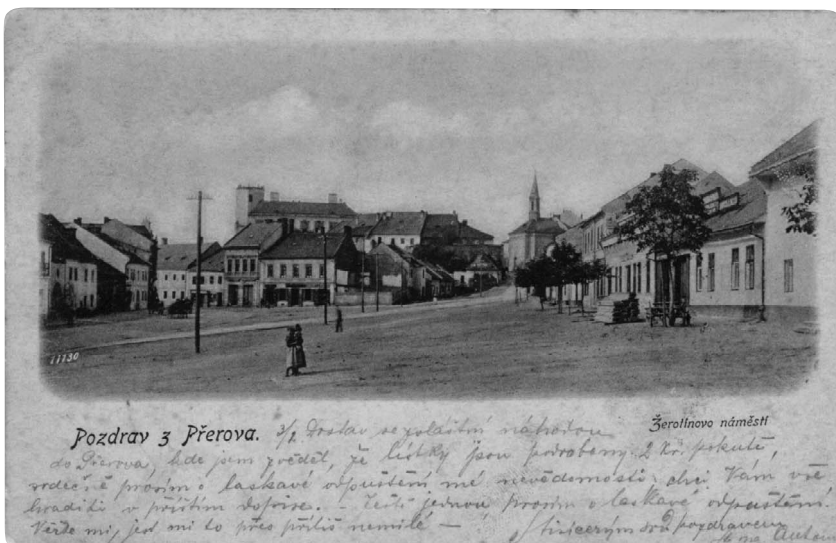 11130
Pozdrav z Přerova.
Žerotínovo náměstí
3/2 Dostav se zvláštní náhodou
do Přerova, kde jsem zvěděl, že lístky jsou podrobeny 2 kr. pokutě,
srdečně prosím o laskavé odpuštění mé nevědomosti, chci Vám vše
hraditi v příštím dopise. – Ještě jednou prosím o laskavé odpuštění.
Věřte mi, jest mi to přes příliš nemilé – S tisícerým pozdravem